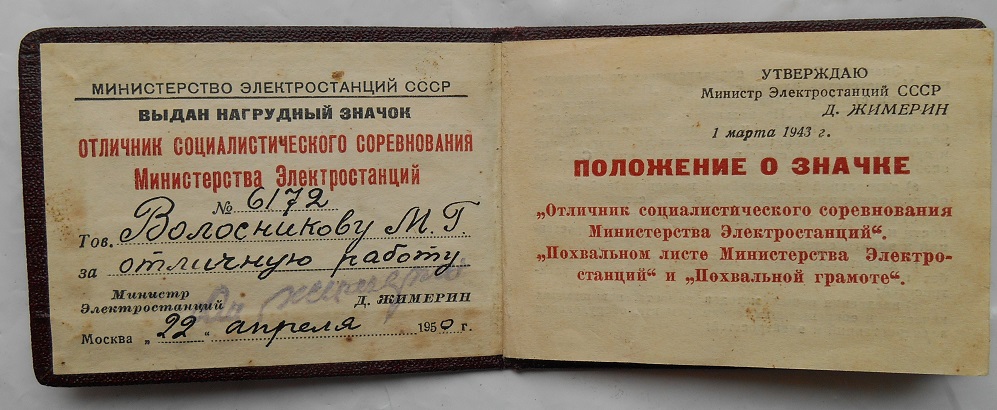 МИНИСТЕРСТВО ЭЛЕКТРОСТАНЦИЙ СССР
ВЫДАН НАГРУДНЫЙ ЗНАЧОК
ОТЛИЧНИК СОЦИАЛИСТИЧЕСКОГО СОРЕВНОВАНИЯ
Министерства Электростанций
№ 6172
Тов. Волосникову М.Г.
за отличную работу
Министр
Электростанций Д. ЖИМЕРИН
Москва „22“ апреля 1950 г.
УТВЕРЖДАЮ
Министр Электростанций СССР
Д. ЖИМЕРИН
1 марта 1943 г.
ПОЛОЖЕНИЕ О ЗНАЧКЕ
„Отличник социалистического соревнования
Министерства Электростанций“.
„Похвальном листе Министерства Электро-
станций“ и „Похвальной грамоте“.